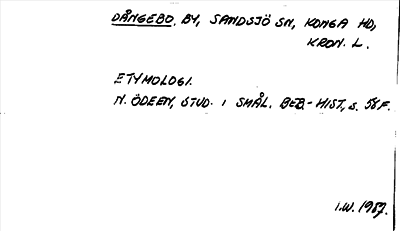 DÅNGEBO, BY, SANDSJÖ SN, KONGA HD,
KRON. L.
ETYMOLOGI.
N. ÖDEEN, STUD. I SMÅL. BEB.-HIST, S. 58 F.
I.W. 1957.